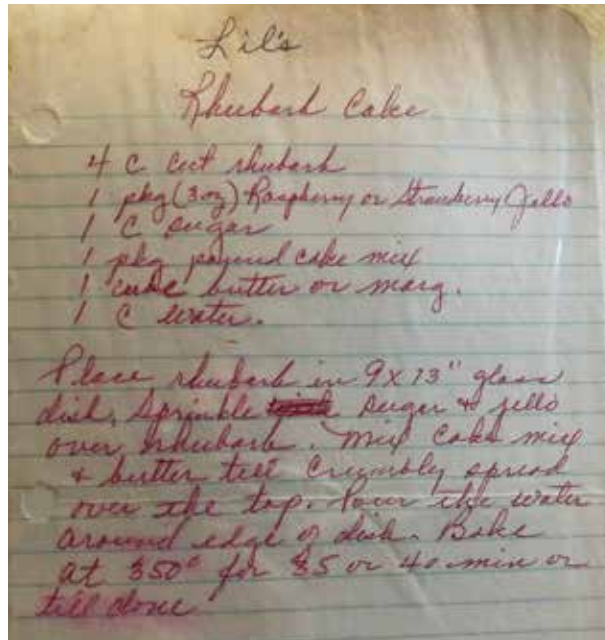 Lil's
Rhubarb Cake
4 C cut rhubarb
1 pkg (3oz) Raspberry or Strawberry Jello
1 C sugar
1 pkg pound cake mix
1 cube butter or marg.
1 C water.
Place rhubarb in 9x13" glass
dish, Sprinkle sugar & jello
over rhubarb. Mix cake mix
& butter till crumbly spread
over the top. Pour the water
around edge of dish. Bake
at 350° for 35 or 40 min or
till done